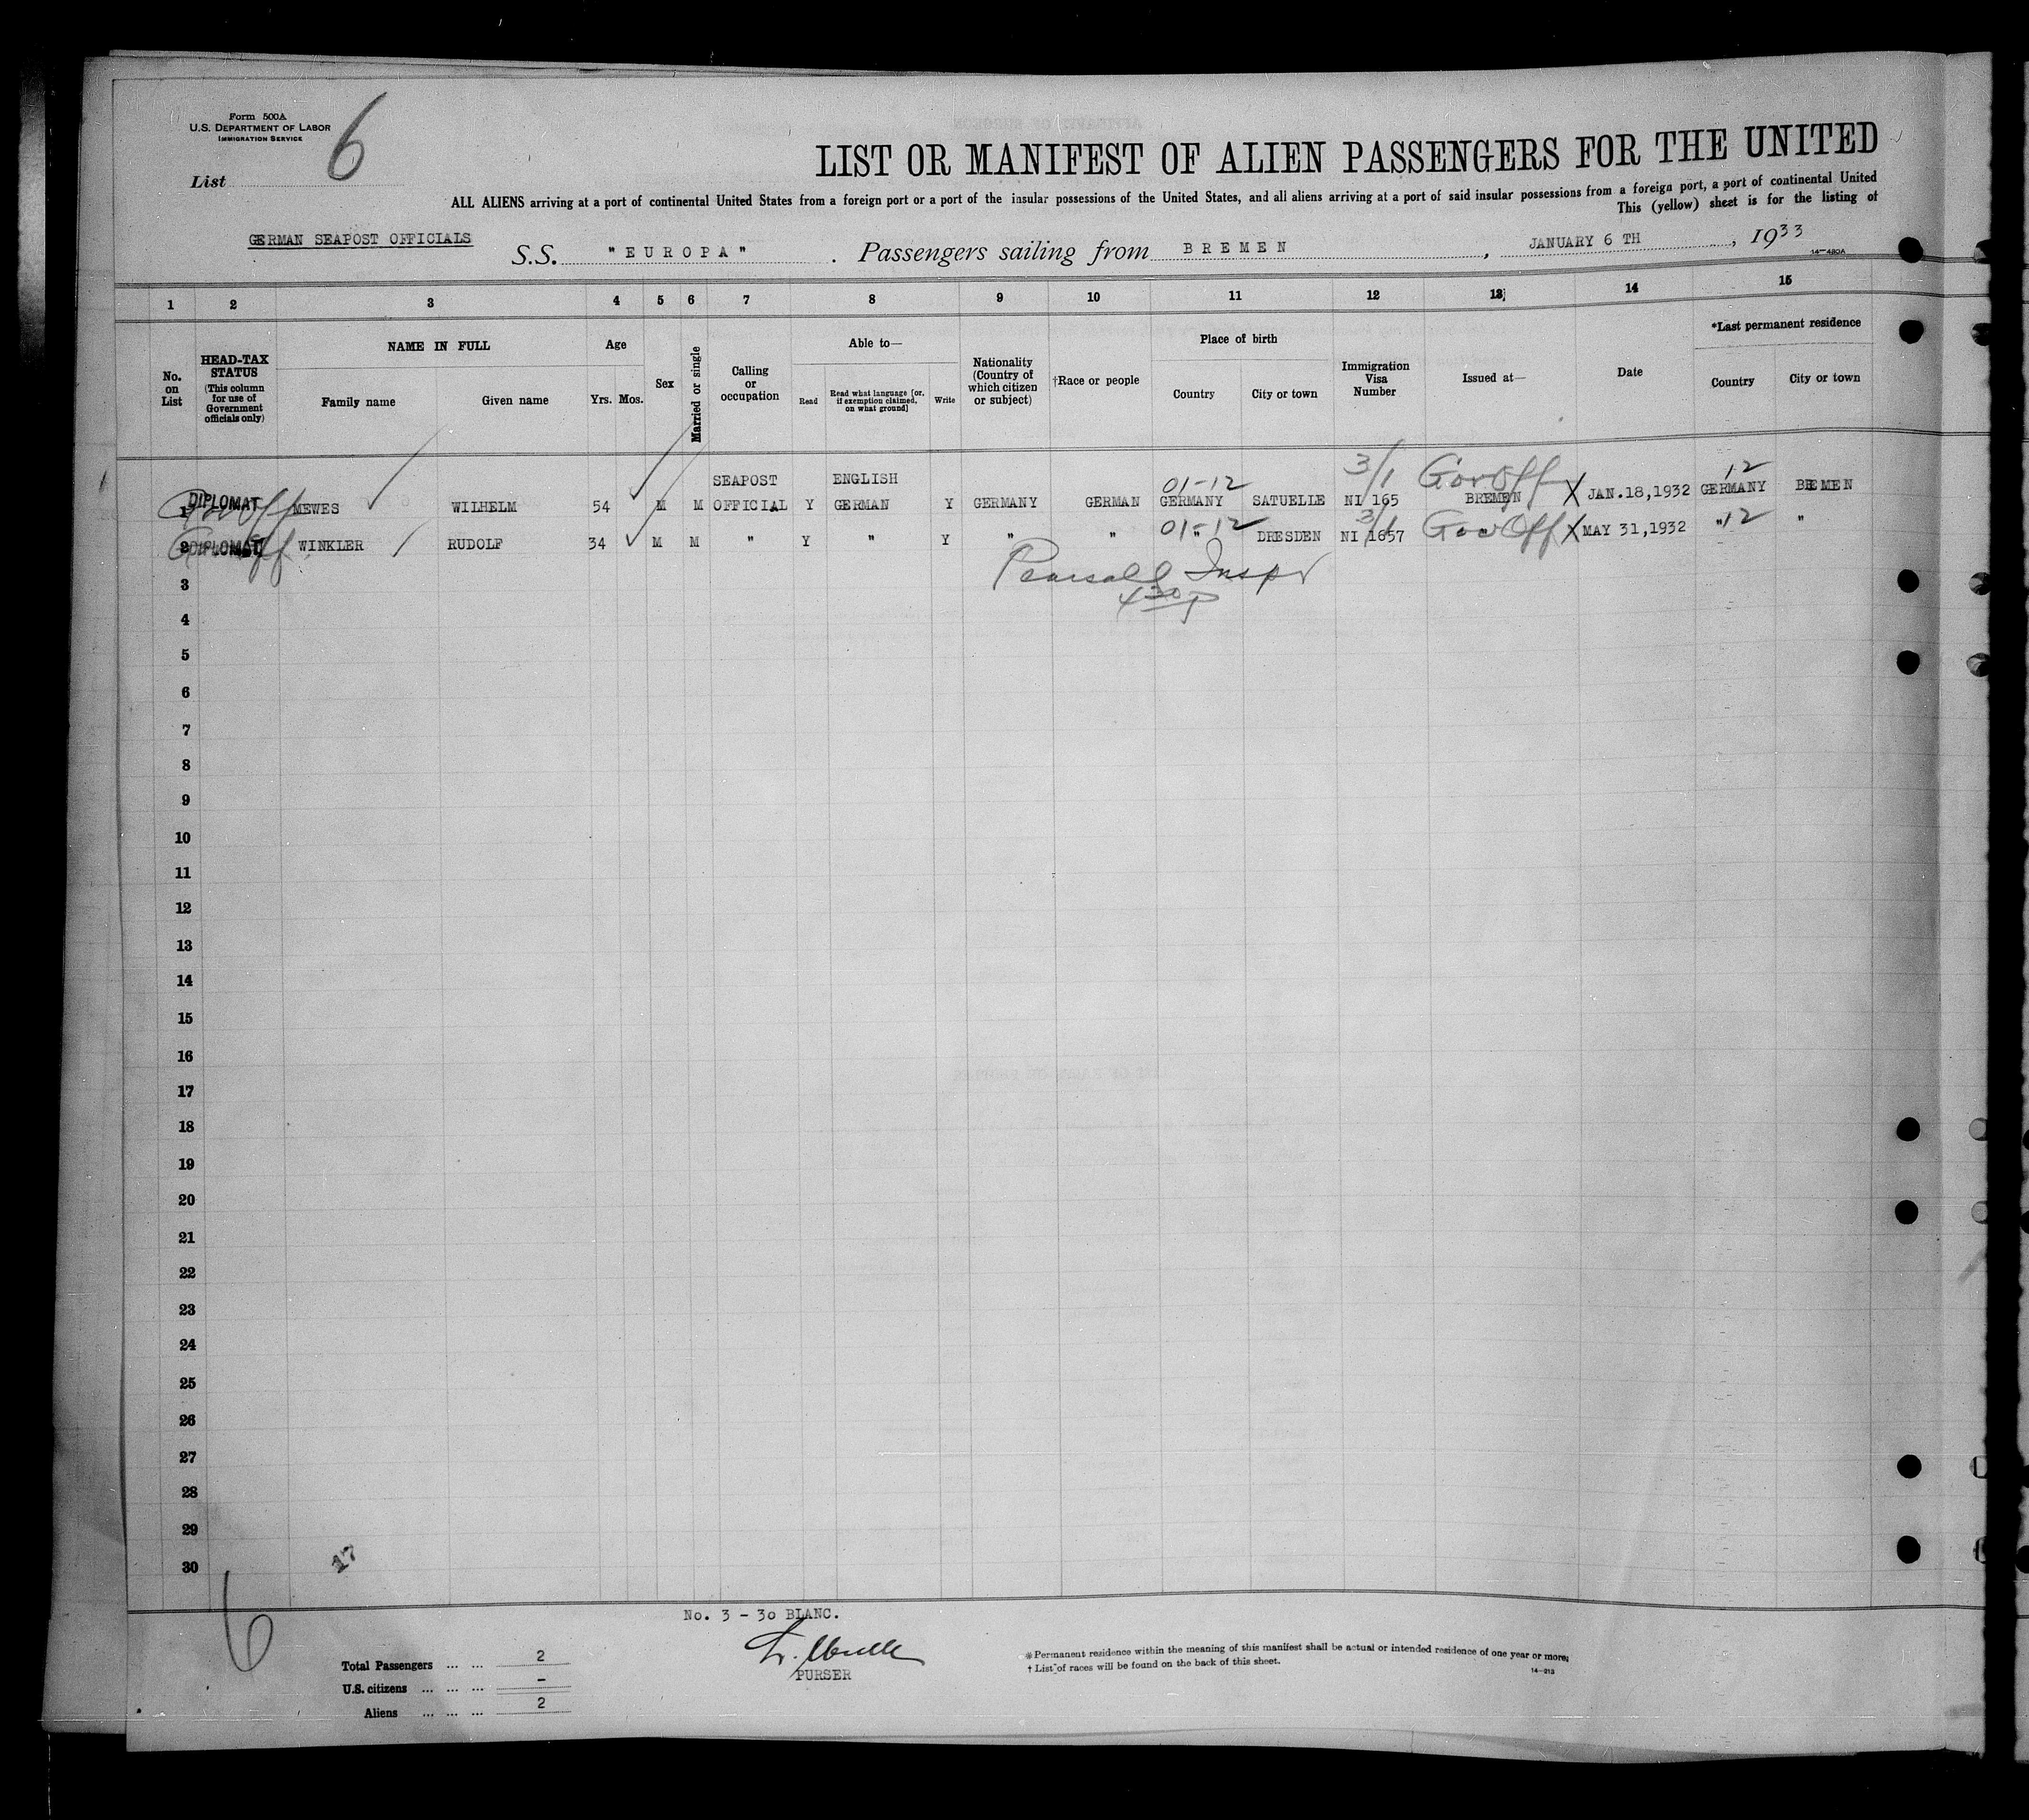 Form 500A
U.S. DEPARTMENT OF LABOR
IMMIGRATION SERVICE
List 6
LIST OR MANIFEST OF ALIEN PASSENGERS FOR THE UNITED
ALL ALIENS arriving at a port of continental United States from a foreign port or a port of the insular possessions of the United States, and all aliens arriving at a port of said insular possessions from a foreign port, a port of continental United
This (yellow) sheet is for the listing of
GERMAN SEAPOST OFFICIALS
S.S. "EUROPA". Passengers sailing from BREMEN, JANUARY 6 TH, 1933
14-480A
1 2 3 4 5 6 7 8 9 10 11 12 13 14 15
No. on List
HEAD-TAX STATUS (This column for use of Government officials only)
NAME IN FULL
Family name Given name
Age
Yrs. Mos.
Sex
Married or single
Calling or occupation
Able to—
Read
Read what language [or, if exemption claimed, on what ground]
Write
Nationality (Country of which citizen or subject)
†Race or people
Place of birth
Country City or town
Immigration Visa Number
Issued at—
Date
*Last permanent residence
Country City or town
SEAPOST ENGLISH 01-12 3/1 Gov Off 12
1 DIPLOMAT Gov Off MEWES WILHELM 54 M M OFFICIAL Y GERMAN Y GERMANY GERMAN GERMANY SATUELLE NI 165 BREMEN X JAN.18,1932 GERMANY BREMEN
01-12 3/1 Gov Off 12
2 DIPLOMAT Gov Off WINKLER RUDOLF 34 M M " Y " Y " " " DRESDEN NI 1657 " X MAY 31,1932 " "
Pearsall Inspr
3
4 30 P
4
5
6
7
8
9
10
11
12
13
14
15
16
17
18
19
20
21
22
23
24
25
26
27
28
29
30
27
6
No. 3 - 30 BLANC.
PURSER
Total Passengers ... ... 2
U.S. citizens ... ... ... -
Aliens ... ... ... 2
* Permanent residence within the meaning of this manifest shall be actual or intended residence of one year or more.
† List of races will be found on the back of this sheet.
14-213